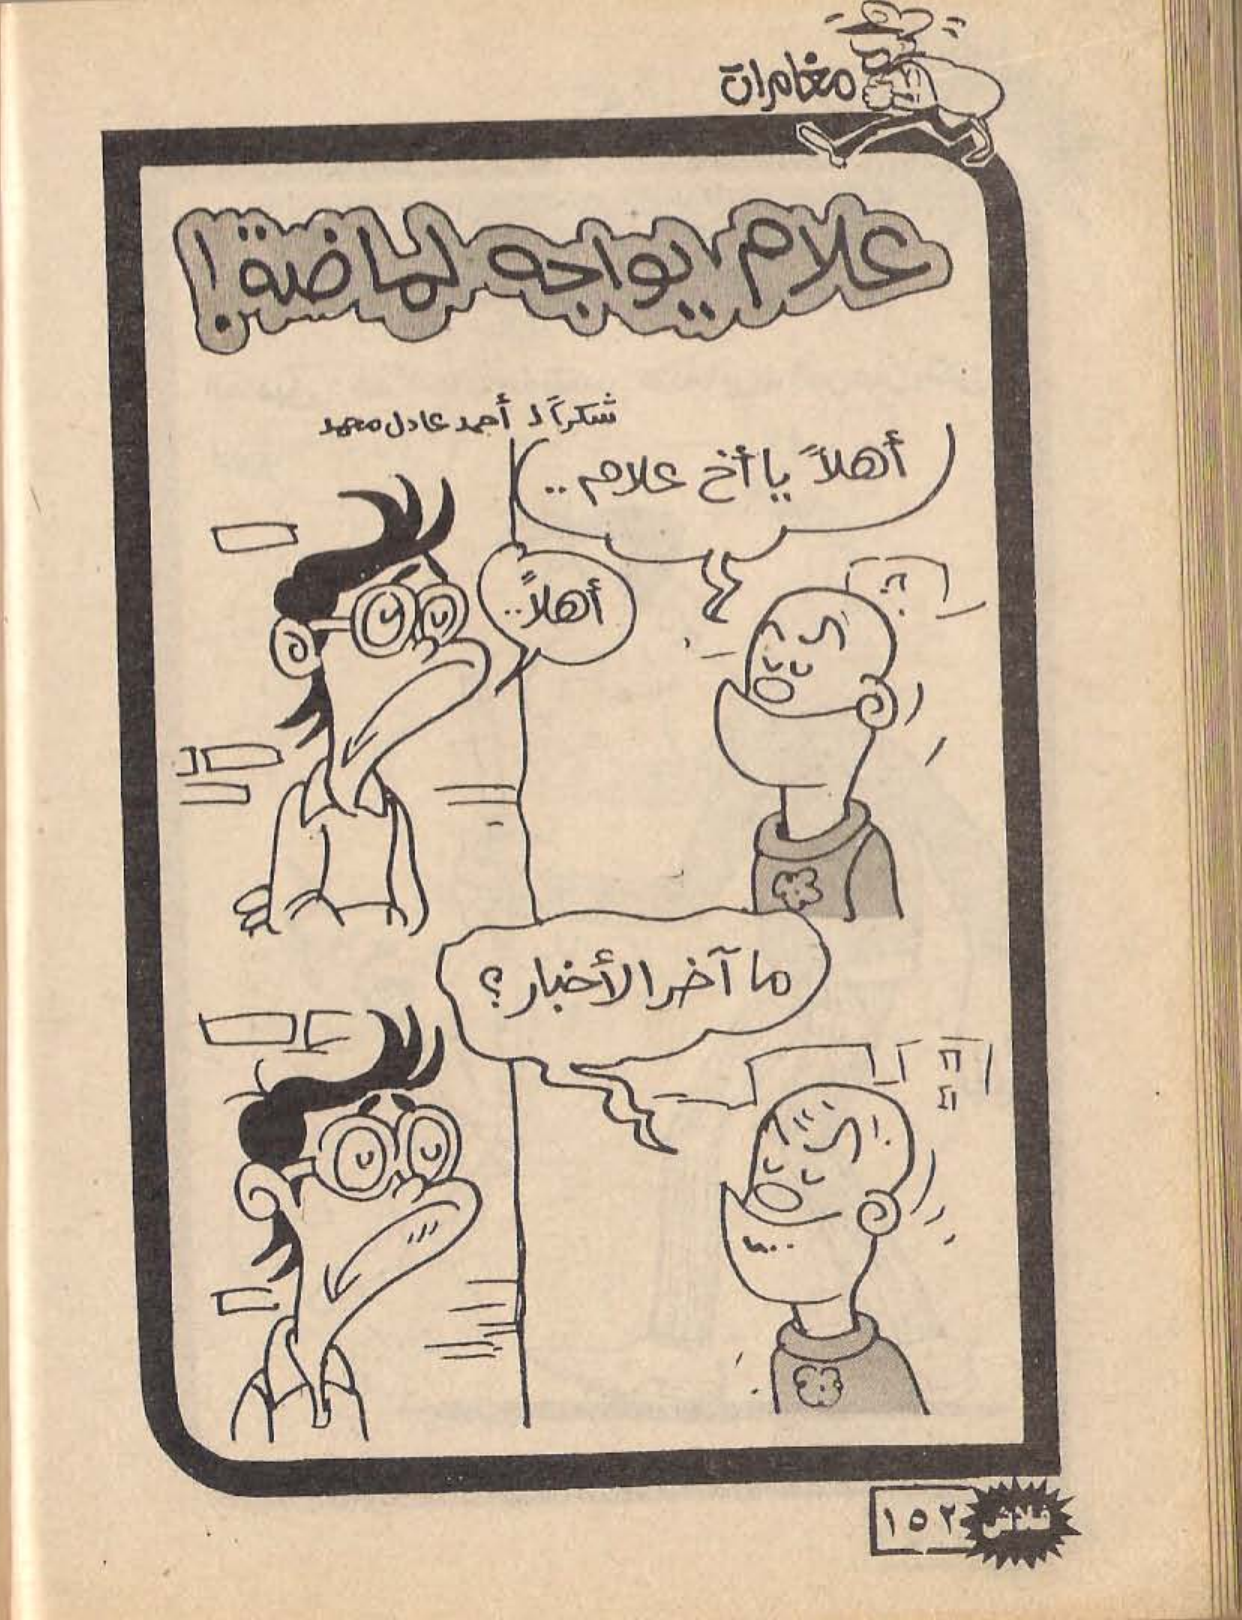 مغامرات
علام يواجه لماضة!
شكراً لـ أحمد عادل محمد
أهلاً يا أخ علام ..
أهلاً..
ما آخر الأخبار؟
فلاش ١٥٢